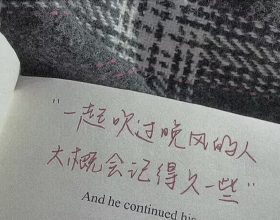 “一起吹过晚风的人
大概会记得久一些”
And he continued his